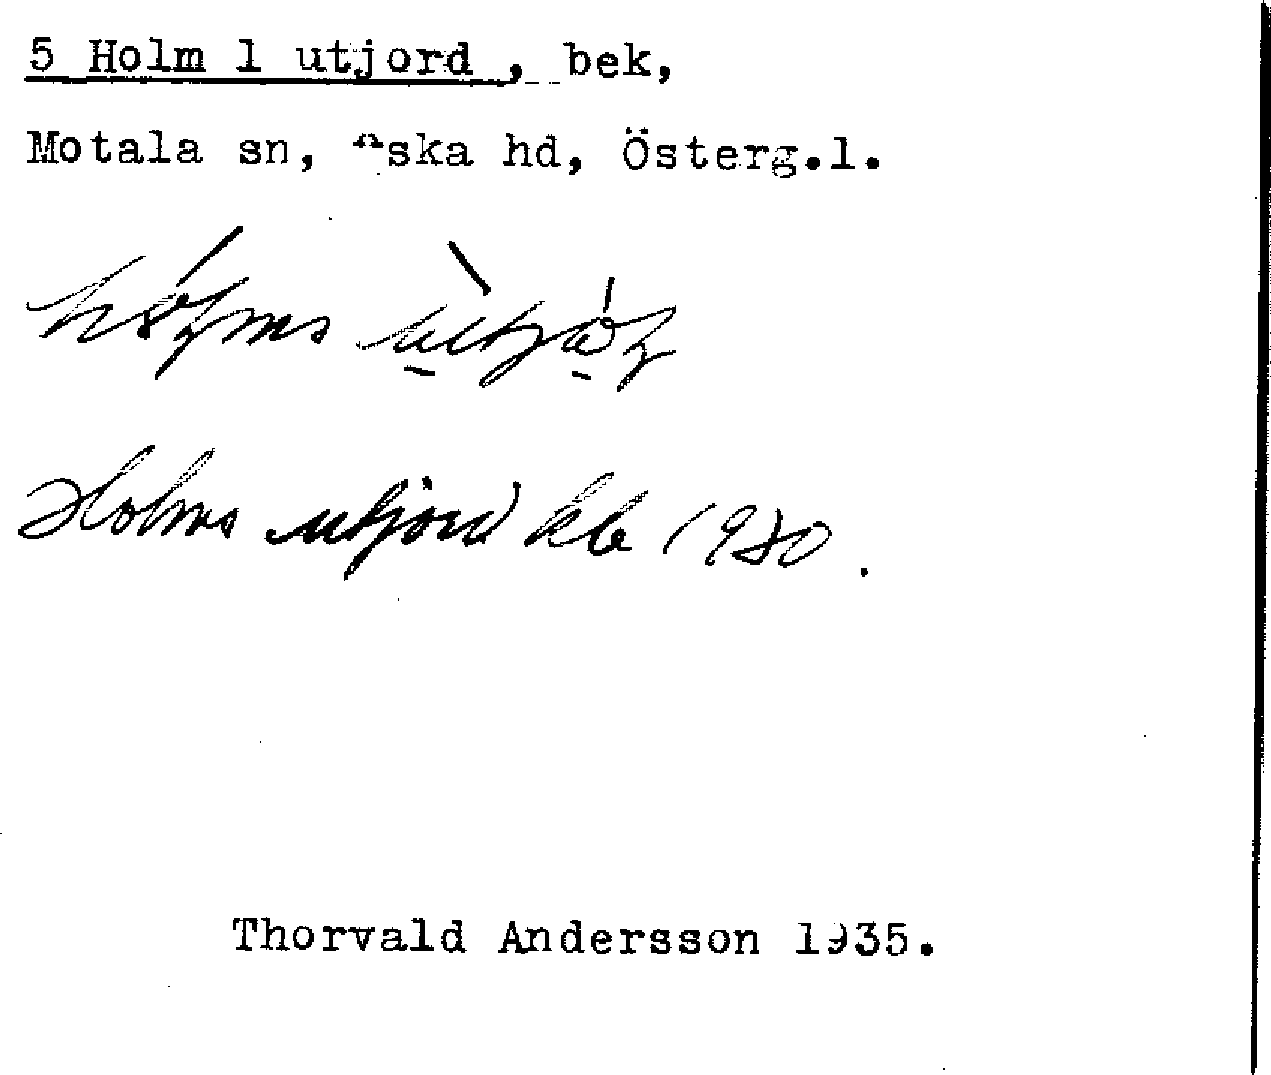 5 Holm 1 utjord , bek,
Motala sn, ska hd, Österg.l.
Holms utjord kb 1930.
Thorvald Andersson 1935.